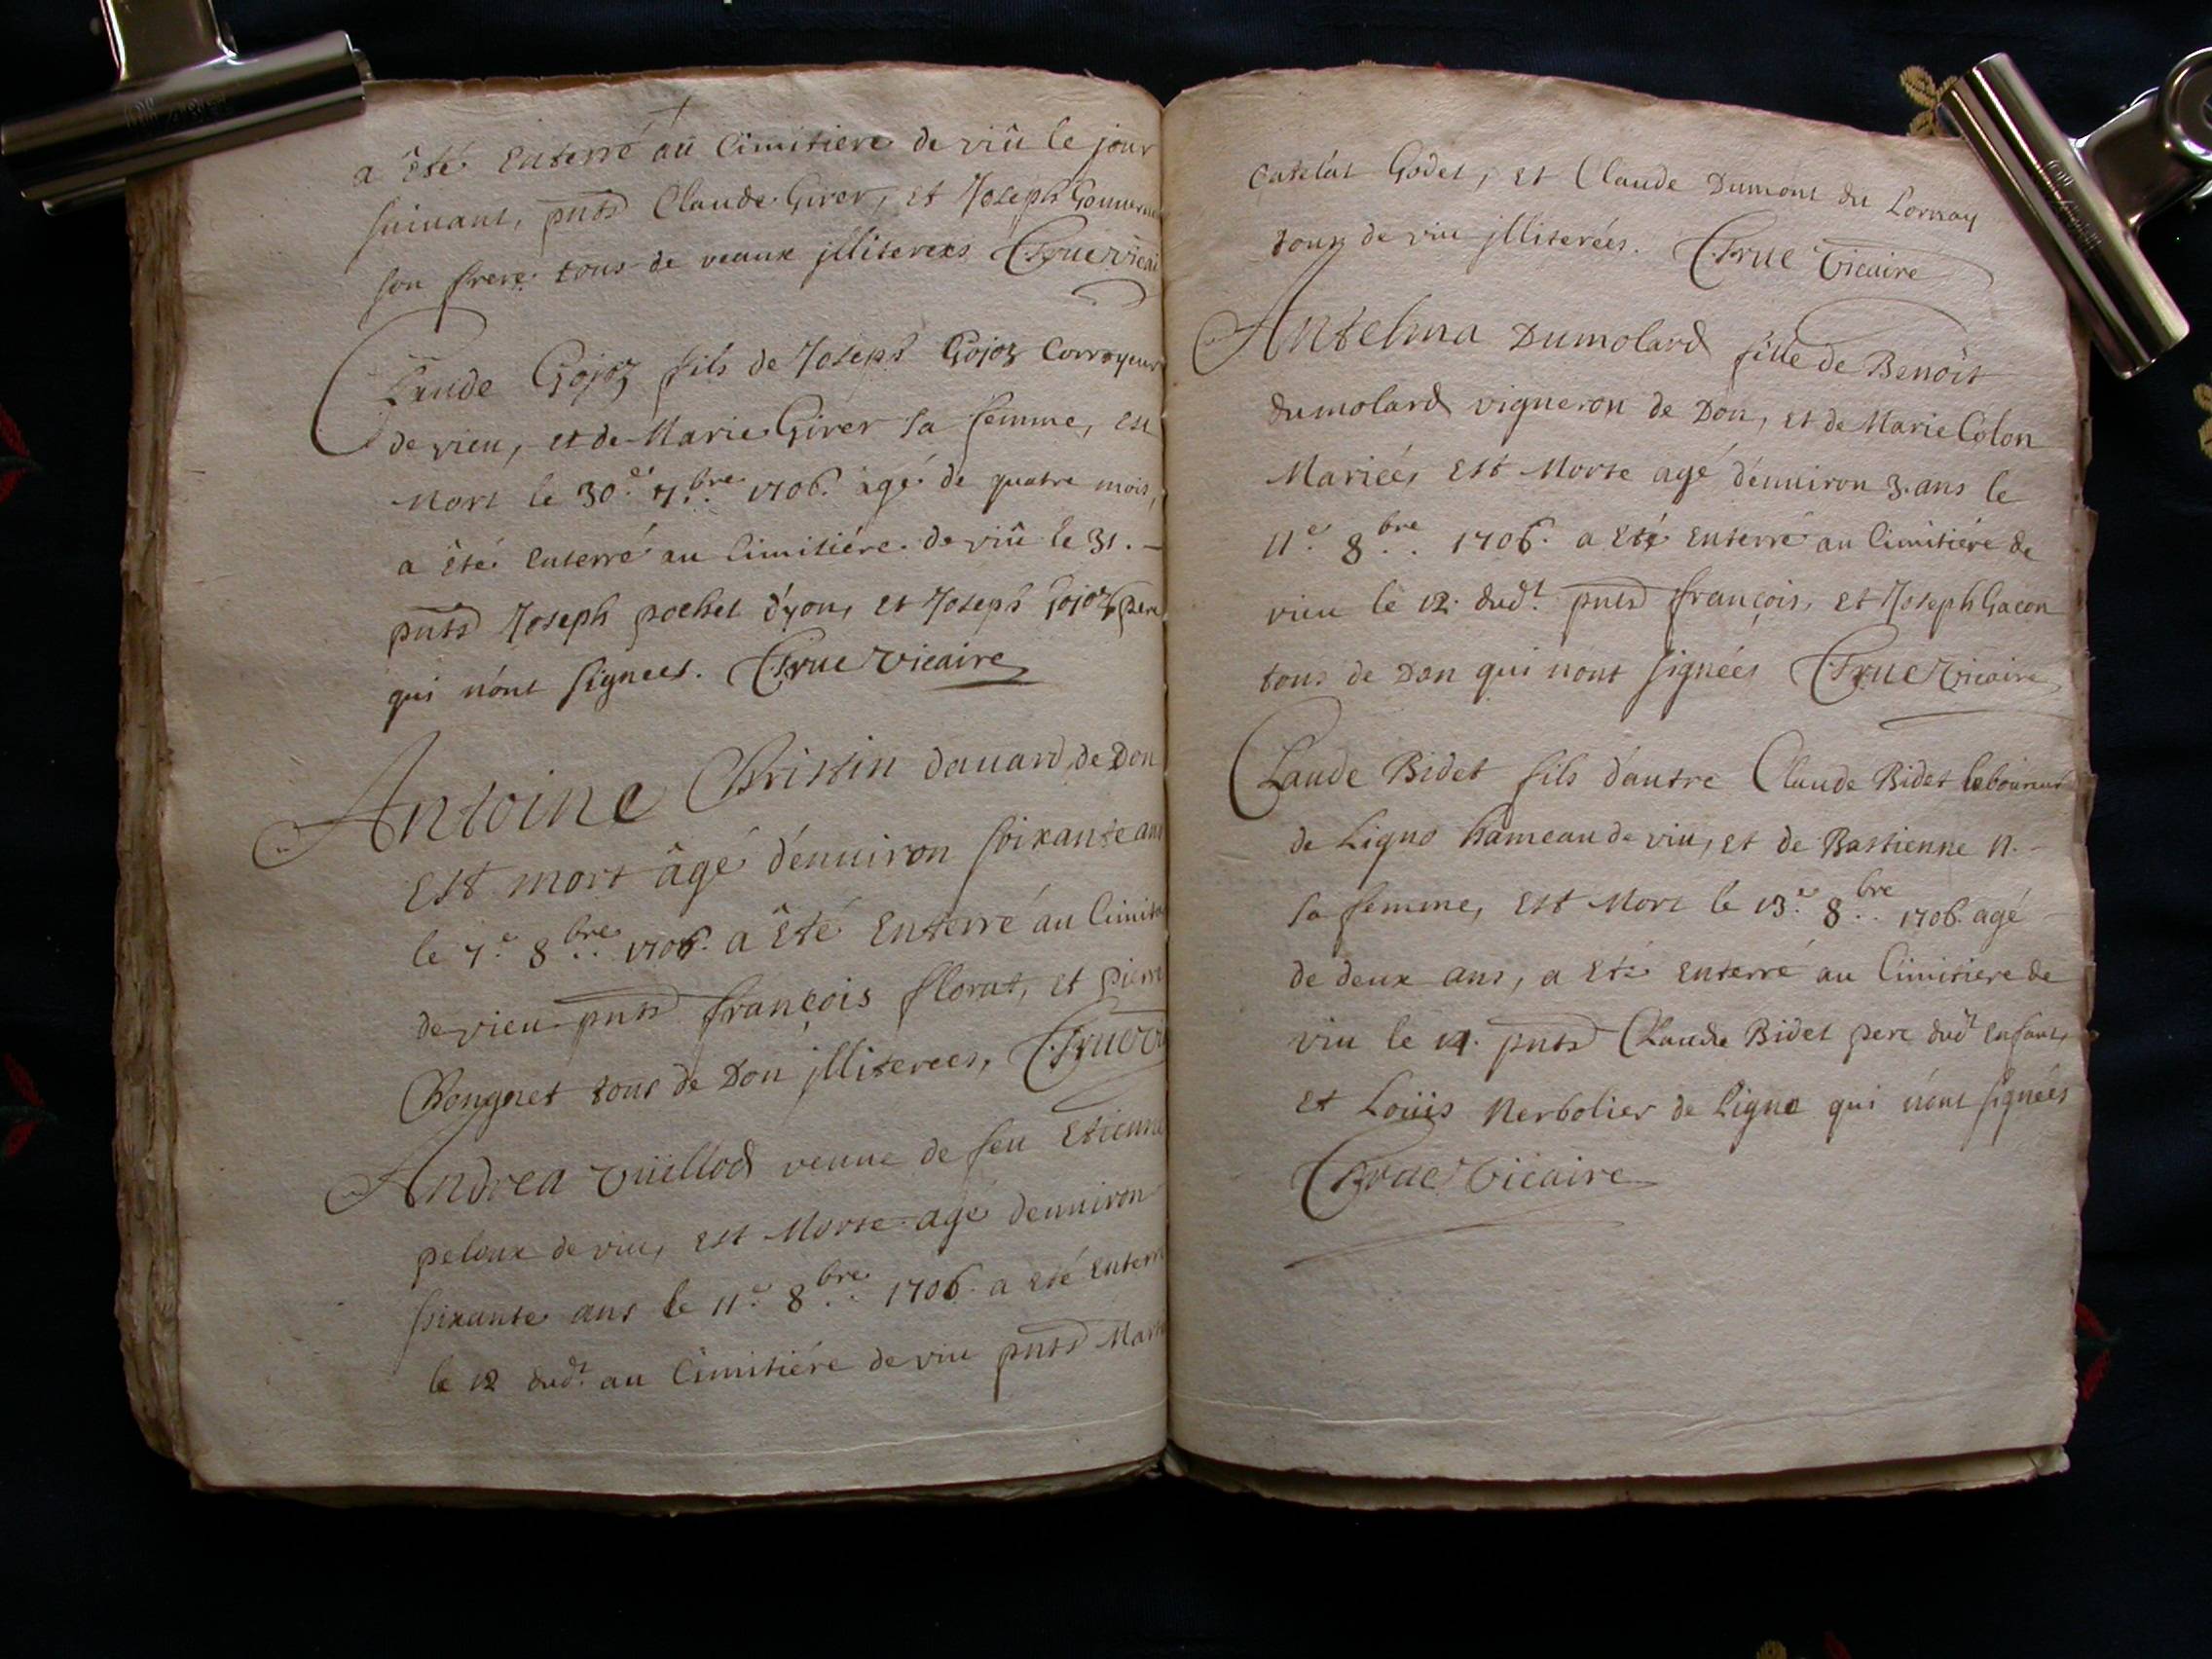 a êté Enterré au Cimitiere de viû le jour
suivant, pnts Claude Girer, et Joseph
son frere tous de veaux jlliterees Crue vicai
Claude Gojoz fils de Joseph Gojoz Corroyeur
de vieu, et de Marie Girer sa femme, est
Mort le 30.e 7.bre 1706. agé de quatre mois,
a êté Enterré au Cimitiére de viû le 31. –
pnts Joseph pochet d'yon, et Joseph Gojoz pere
qui n'ont signees. Crue Vicaire
Antoine Christin davard, de Don
Est mort âgé d'enuiron soixante ans
le 7.e 8.bre 1706. a Eté Enterré au Cimit
de vieu pnts françois florat, et pierre
Chongnet tous de Don jlliterees, Crue Vi
Andrea Vuillod veuue de feu Etienne
peloux de viu, est Morte agé denuiron
soixante ans le 11.e 8.bre 1706. a eté Enterre
le 12 dud.t au Cimitiére de viu pnts Mar
Catelat Godet, et Claude Dumont du Lornay
tous de viu jlliterées. Crue Vicaire
Antelma Dumolard fille de Benoît
dumolard vigneron de Don, et de Marie Colon
Mariées Est Morte agé d'enuiron 3. ans le
11.e 8.bre 1706. a Eté Enterré au Cimitiére de
vieu le 12. dud.t pnts françois, et Joseph Gacon
tous de Don qui nont signées Crue Vicaire
Claude Bidet fils d'autre Claude Bidet laboureur
de Ligno hameau de viu, et de Bastienne N. –
sa femme, Est Mort le 13.e 8.bre 1706. agé –
de deux ans, a Eté enterré au Cimitiere de
viu le 14. pnts Claude Bidet pere dud.t Enfant,
et Loüis Nerbolier de Ligno qui n'ont signées
Crue Vicaire